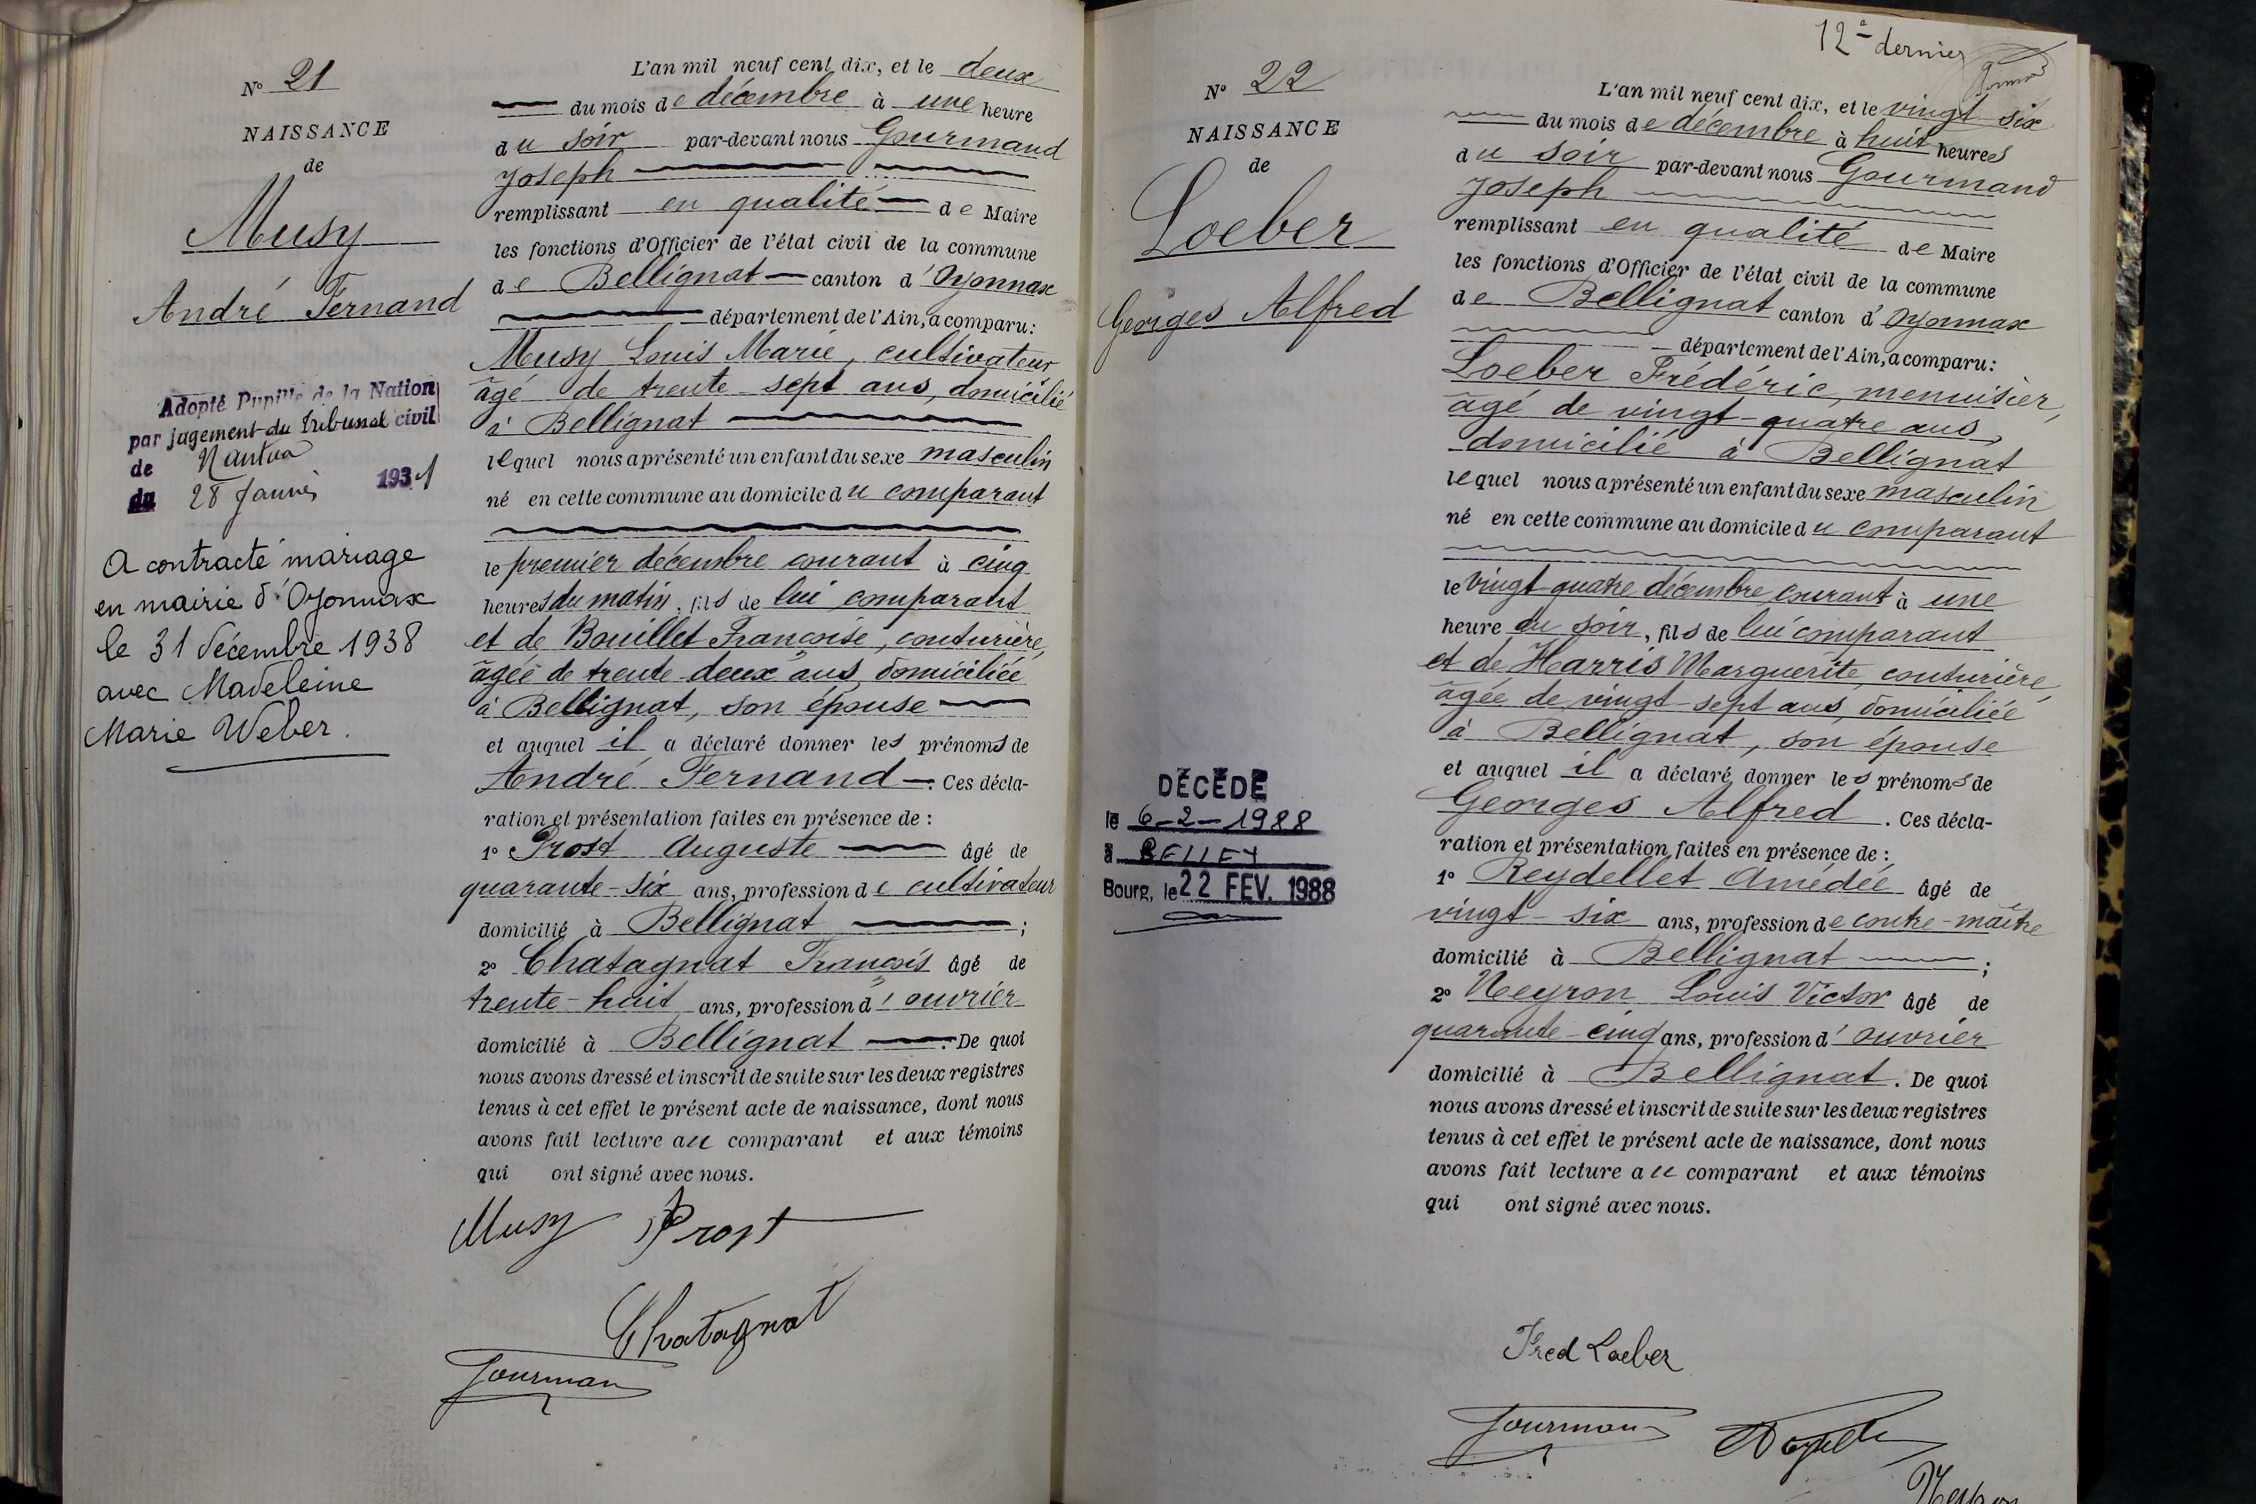 N° 21
NAISSANCE
de
Musy
André Fernand
Adopté Pupille de la Nation
par jugement du Tribunal civil
de Nantua
du 28 Janvier 1931
A contracté mariage
en mairie d'Oyonnax
le 31 décembre 1938
avec Madeleine
Marie Weber.
L'an mil neuf cent dix, et le deux
du mois de décembre à une heure
du soir par-devant nous Gourmand
Joseph
remplissant en qualité de Maire
les fonctions d'Officier de l'état civil de la commune
de Bellignat canton d'Oyonnax
département de l'Ain, a comparu :
Musy Louis Marie, cultivateur
âgé de trente sept ans, domicilié
à Bellignat
lequel nous a présenté un enfant du sexe masculin
né en cette commune au domicile du comparant
le premier décembre courant à cinq
heures du matin, fils de lui comparant
et de Bouillet Françoise, couturière,
âgée de trente-deux ans, domiciliée
à Bellignat, son épouse
et auquel il a déclaré donner les prénoms de
André Fernand. Ces décla-
ration et présentation faites en présence de :
1° Prost Auguste âgé de
quarante-six ans, profession de cultivateur
domicilié à Bellignat ;
2° Chatagnat François âgé de
trente-huit ans, profession d'ouvrier
domicilié à Bellignat. De quoi
nous avons dressé et inscrit de suite sur les deux registres
tenus à cet effet le présent acte de naissance, dont nous
avons fait lecture au comparant et aux témoins
qui ont signé avec nous.
Musy Prost
Chatagnat
Gourman
12e dernier
N° 22
NAISSANCE
de
Loeber
Georges Alfred
DÉCÉDÉ
le 6-2-1988
à BELLEY
Bourg, le 22 FEV. 1988
L'an mil neuf cent dix, et le vingt six
du mois de décembre à huit heures
du soir par-devant nous Gourmand
Joseph
remplissant en qualité de Maire
les fonctions d'Officier de l'état civil de la commune
de Bellignat canton d'Oyonnax
département de l'Ain, a comparu :
Loeber Frédéric, menuisier,
âgé de vingt-quatre ans,
domicilié à Bellignat
lequel nous a présenté un enfant du sexe masculin
né en cette commune au domicile du comparant
le vingt quatre décembre courant à une
heure du soir, fils de lui comparant
et de Harris Marguerite, couturière,
âgée de vingt-sept ans, domiciliée
à Bellignat, son épouse
et auquel il a déclaré donner les prénoms de
Georges Alfred. Ces décla-
ration et présentation faites en présence de :
1° Reydellet Amédée âgé de
vingt-six ans, profession de contre-maître
domicilié à Bellignat ;
2° Neyron Louis Victor âgé de
quarante-cinq ans, profession d'ouvrier
domicilié à Bellignat. De quoi
nous avons dressé et inscrit de suite sur les deux registres
tenus à cet effet le présent acte de naissance, dont nous
avons fait lecture au comparant et aux témoins
qui ont signé avec nous.
Fred Loeber
Gourman